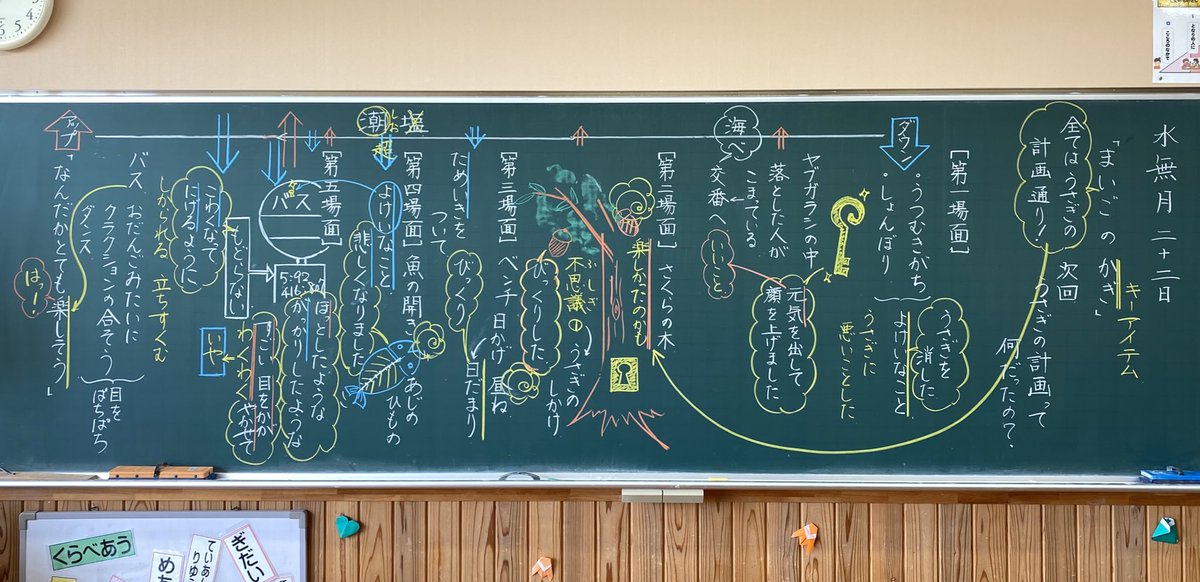 水無月 二十二日
「まいごのかぎ」
キーアイテム
次回
うさぎの計画って
何だったの？
全てはうさぎの
計画通り！
［第一場面］
ダウン
・うつむきがち
・しょんぼり
うさぎを
消した
よけいなこと
うさぎに
悪いことした
ヤブガラシの中
落とした人が
こまっている
海べ
交番へ
いいこと
元気を出して
顔を上げました
［第二場面］ さくらの木
楽しかたのかも
不思議の
ふしぎ
うさぎの
しかけ
びっくりした
［第三場面］ ベンチ 日かげ 昼ね
日だまり
ためいきを
ついて
びっくり
［第四場面］ 魚の開き
あじの
ひもの
潮
塩
超
よけいなこと
悲しくなりました
［第五場面］
バス
5:92
ほっとしたような
がっかりしたような
目をかが
やかせて
わくわく
もどらない
いや
こわくなて
にげるように
しかられる 立ちすくむ
バス おだんごみたいに
クラクションの合そう
ダンス
目を
ぱちぱち
アップ
「なんだかとても楽しそう」
はっ！
くらべあう
ぎだい